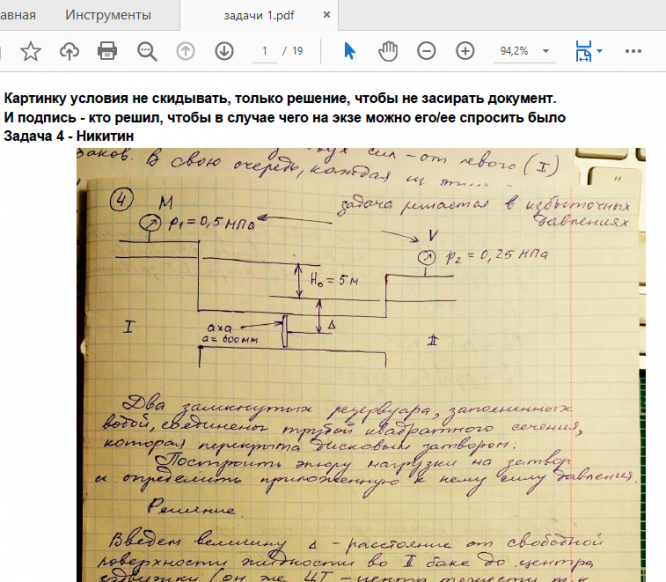 авная
Инструменты
задачи 1.pdf
×
1 / 19
94,2%
Картинку условия не скидывать, только решение, чтобы не засирать документ.
И подпись - кто решил, чтобы в случае чего на экзе можно его/ее спросить было
Задача 4 - Никитин
сил - от левого (I)
заков. В свою очередь, каждая
4 М
задача решается в избыточных
давлениях
p₁ = 0,5 МПа
V
p₂ = 0,25 МПа
H₀ = 5 м
I
axa
a = 600 мм
Δ
II
Два замкнутых резервуара, заполненных
водой, соединены трубой квадратного сечения,
которая перекрыта дисковым затвором.
Построить эпюру нагрузки на затвор
и определить приложенную к нему силу давления.
Решение.
Введем величину Δ - расстояние от свободной
поверхности жидкости во II баке до центра
задвижки (он же ЦТ - центр тяжести